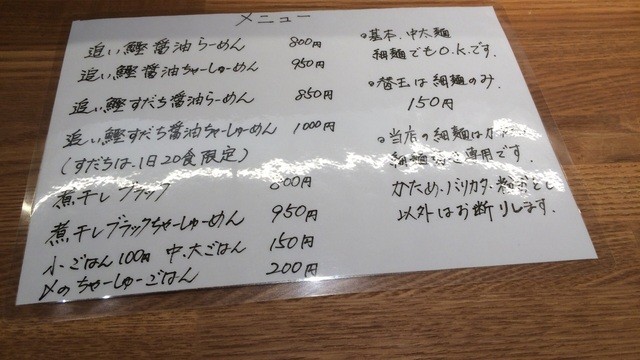 メニュー
追い鰹醤油らーめん 800円
追い鰹醤油ちゃーしゅーめん 950円
追い鰹すだち醤油らーめん 850円
追い鰹すだち醤油ちゃーしゅーめん 1000円
(すだちは、1日20食限定)
煮干しブラック 800円
煮干しブラックちゃーしゅーめん 950円
小ごはん100円 中、大ごはん 150円
〆のちゃーしゅーごはん 200円
基本、中太麺
細麺でもO.K.です。
替玉は細麺のみ。
150円
当店の細麺は
細麺 専用です。
かため、バリカタ、粉おとし
以外はお断りします。